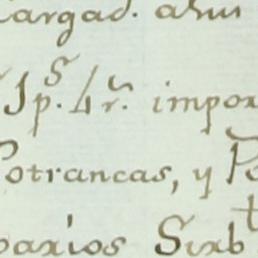 cargad. ahu
Jp.s 4 r.s impor
Potrancas, y Po
parios Sirb